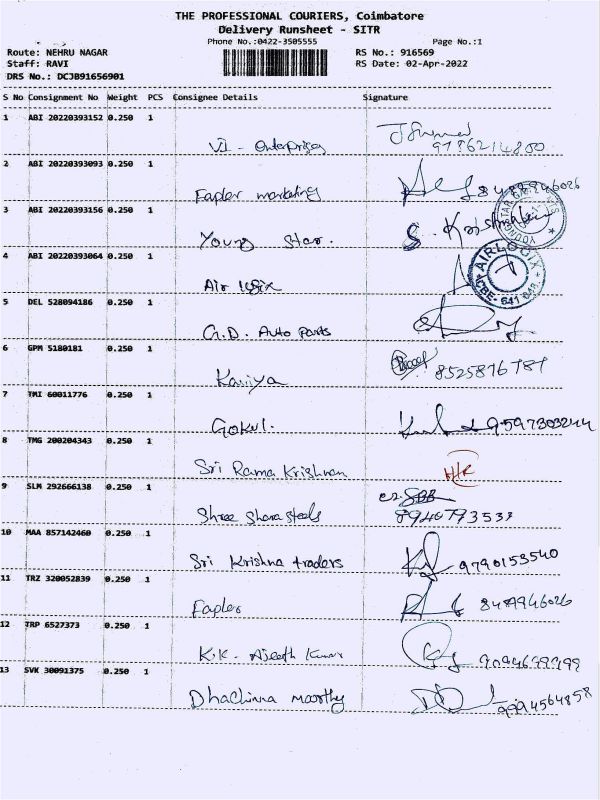 THE PROFESSIONAL COURIERS, Coimbatore
Delivery Runsheet - SITR
Phone No.:0422-3505555 Page No.:1
Route: NEHRU NAGAR RS No.: 916569
Staff: RAVI RS Date: 02-Apr-2022
DRS No.: DCJB91656901
S No Consignment No Weight PCS Consignee Details Signature
1 ABI 20220393152 0.250 1
VI - Enterprises 9786214800
2 ABI 20220393093 0.250 1
Fapler marketing 8489946026
3 ABI 20220393156 0.250 1
Young Star. S.
YOUNGSTAR
4 ABI 20220393064 0.250 1
Air logix
AIRLOGIX
CBE- 641 048
5 DEL 528094186 0.250 1
G.D. Auto Parts
6 GPM 5180181 0.250 1
Kaniya 8525876787
7 TMI 60011776 0.250 1
Gokul. 9597303244
8 TMG 200204343 0.250 1
Sri Rama Krishnan H/R
9 SLM 292666138 0.250 1
Shree Shara steels 8940793533
10 MAA 857142460 0.250 1
Sri Krishna traders 9790153540
11 TRZ 320052839 0.250 1
Fapler 8489946026
12 TRP 6527373 0.250 1
K.K. Ajeeth Kumar 9094699999
13 SVK 30091375 0.250 1
Dhachinna moorthy 9994564858